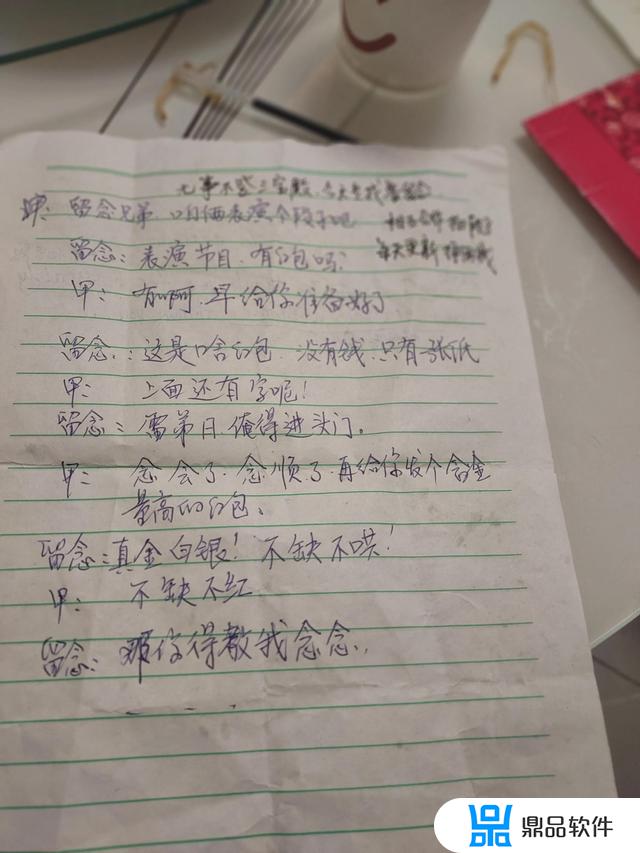 无事不登三宝殿.今天来找留念
甲: 留念兄弟.咱俩表演个段子吧
每天更新
留念: 表演节目.有红包吗?
甲: 有啊.早给你准备好了
留念: 这是啥红包.没有钱.只有张纸
甲: 上面还有字呢!
留念: 日.俺得进头门.
甲: 念会了.念顺了.再给你发个含金
量高的红包.
留念: 真金白银! 不缺不哄!
甲: 不缺不红
留念: 那你得教我念念.
鼎品软件